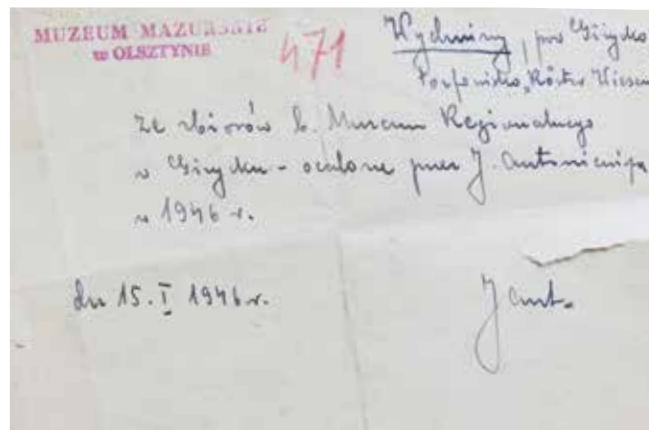 MUZEUM MAZURSKIE
w OLSZTYNIE
471
Wydminy, pow Giżycko
Torfowisko, Röster Wiesen
ze zbiorów b. Muzeum Regionalnego
w Giżycku - ocalone przez J. Antoniewicza
w 1946 r.
dn 15. I 1946 r.
J Ant.